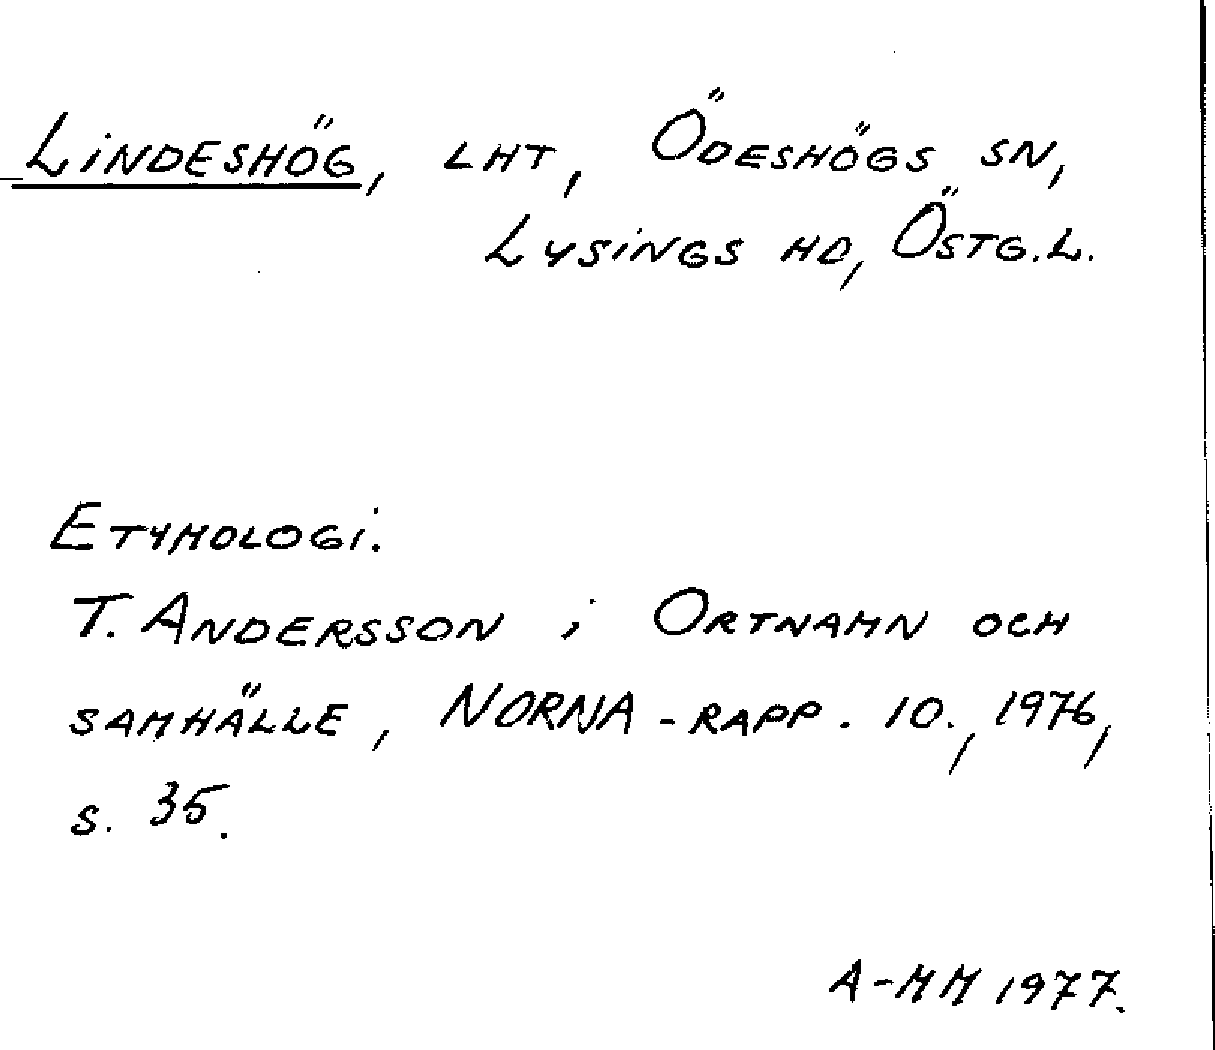 Lindeshög, lht, Ödeshögs sn,
Lysings hd, Östg.l.
Etymologi:
T. Andersson i Ortnamn och
samhälle, NORNA-rapp. 10., 1976,
s. 35.
A-MM 1977.